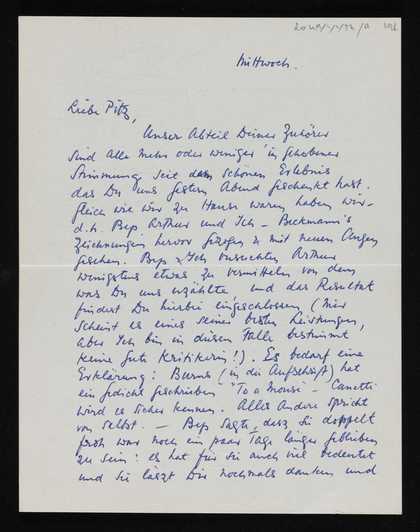 Mittwoch.
Liebe Pitz,
Unser Abteil Deiner Zuhörer
sind alle mehr oder weniger in gehobener
Stimmung seit dem schönen Erlebnis
das Du uns gestern Abend geschenkt hast.
Gleich wie wir zu Hause waren haben wir –
d.h. Bep, Arthur und Ich – Beckmann's
Zeichnungen hervor gezogen u. mit neuen Augen
gesehen. Bep & Ich versuchten Arthur
wenigstens etwas zu vermitteln von dem
was Du uns erzählte und das Resultat
findest Du hierbei eingeschlossen (mir
scheint es eines seiner besten Leistungen,
aber Ich bin in diesem Falle bestimmt
keine gute Kritikerin!). Es bedarf eine
Erklärung: Burns (in die Aufschrift) hat
ein gedicht geschrieben "To a Mouse" – Canetti
wird es sicher kennen. Alles Andere spricht
von selbst. – Bep sagte, dasz Sie doppelt
froh war noch ein paar Tage länger geblieben
zu sein: es hat für sie auch viel bedeutet
und Sie läszt Dir nochmals danken und